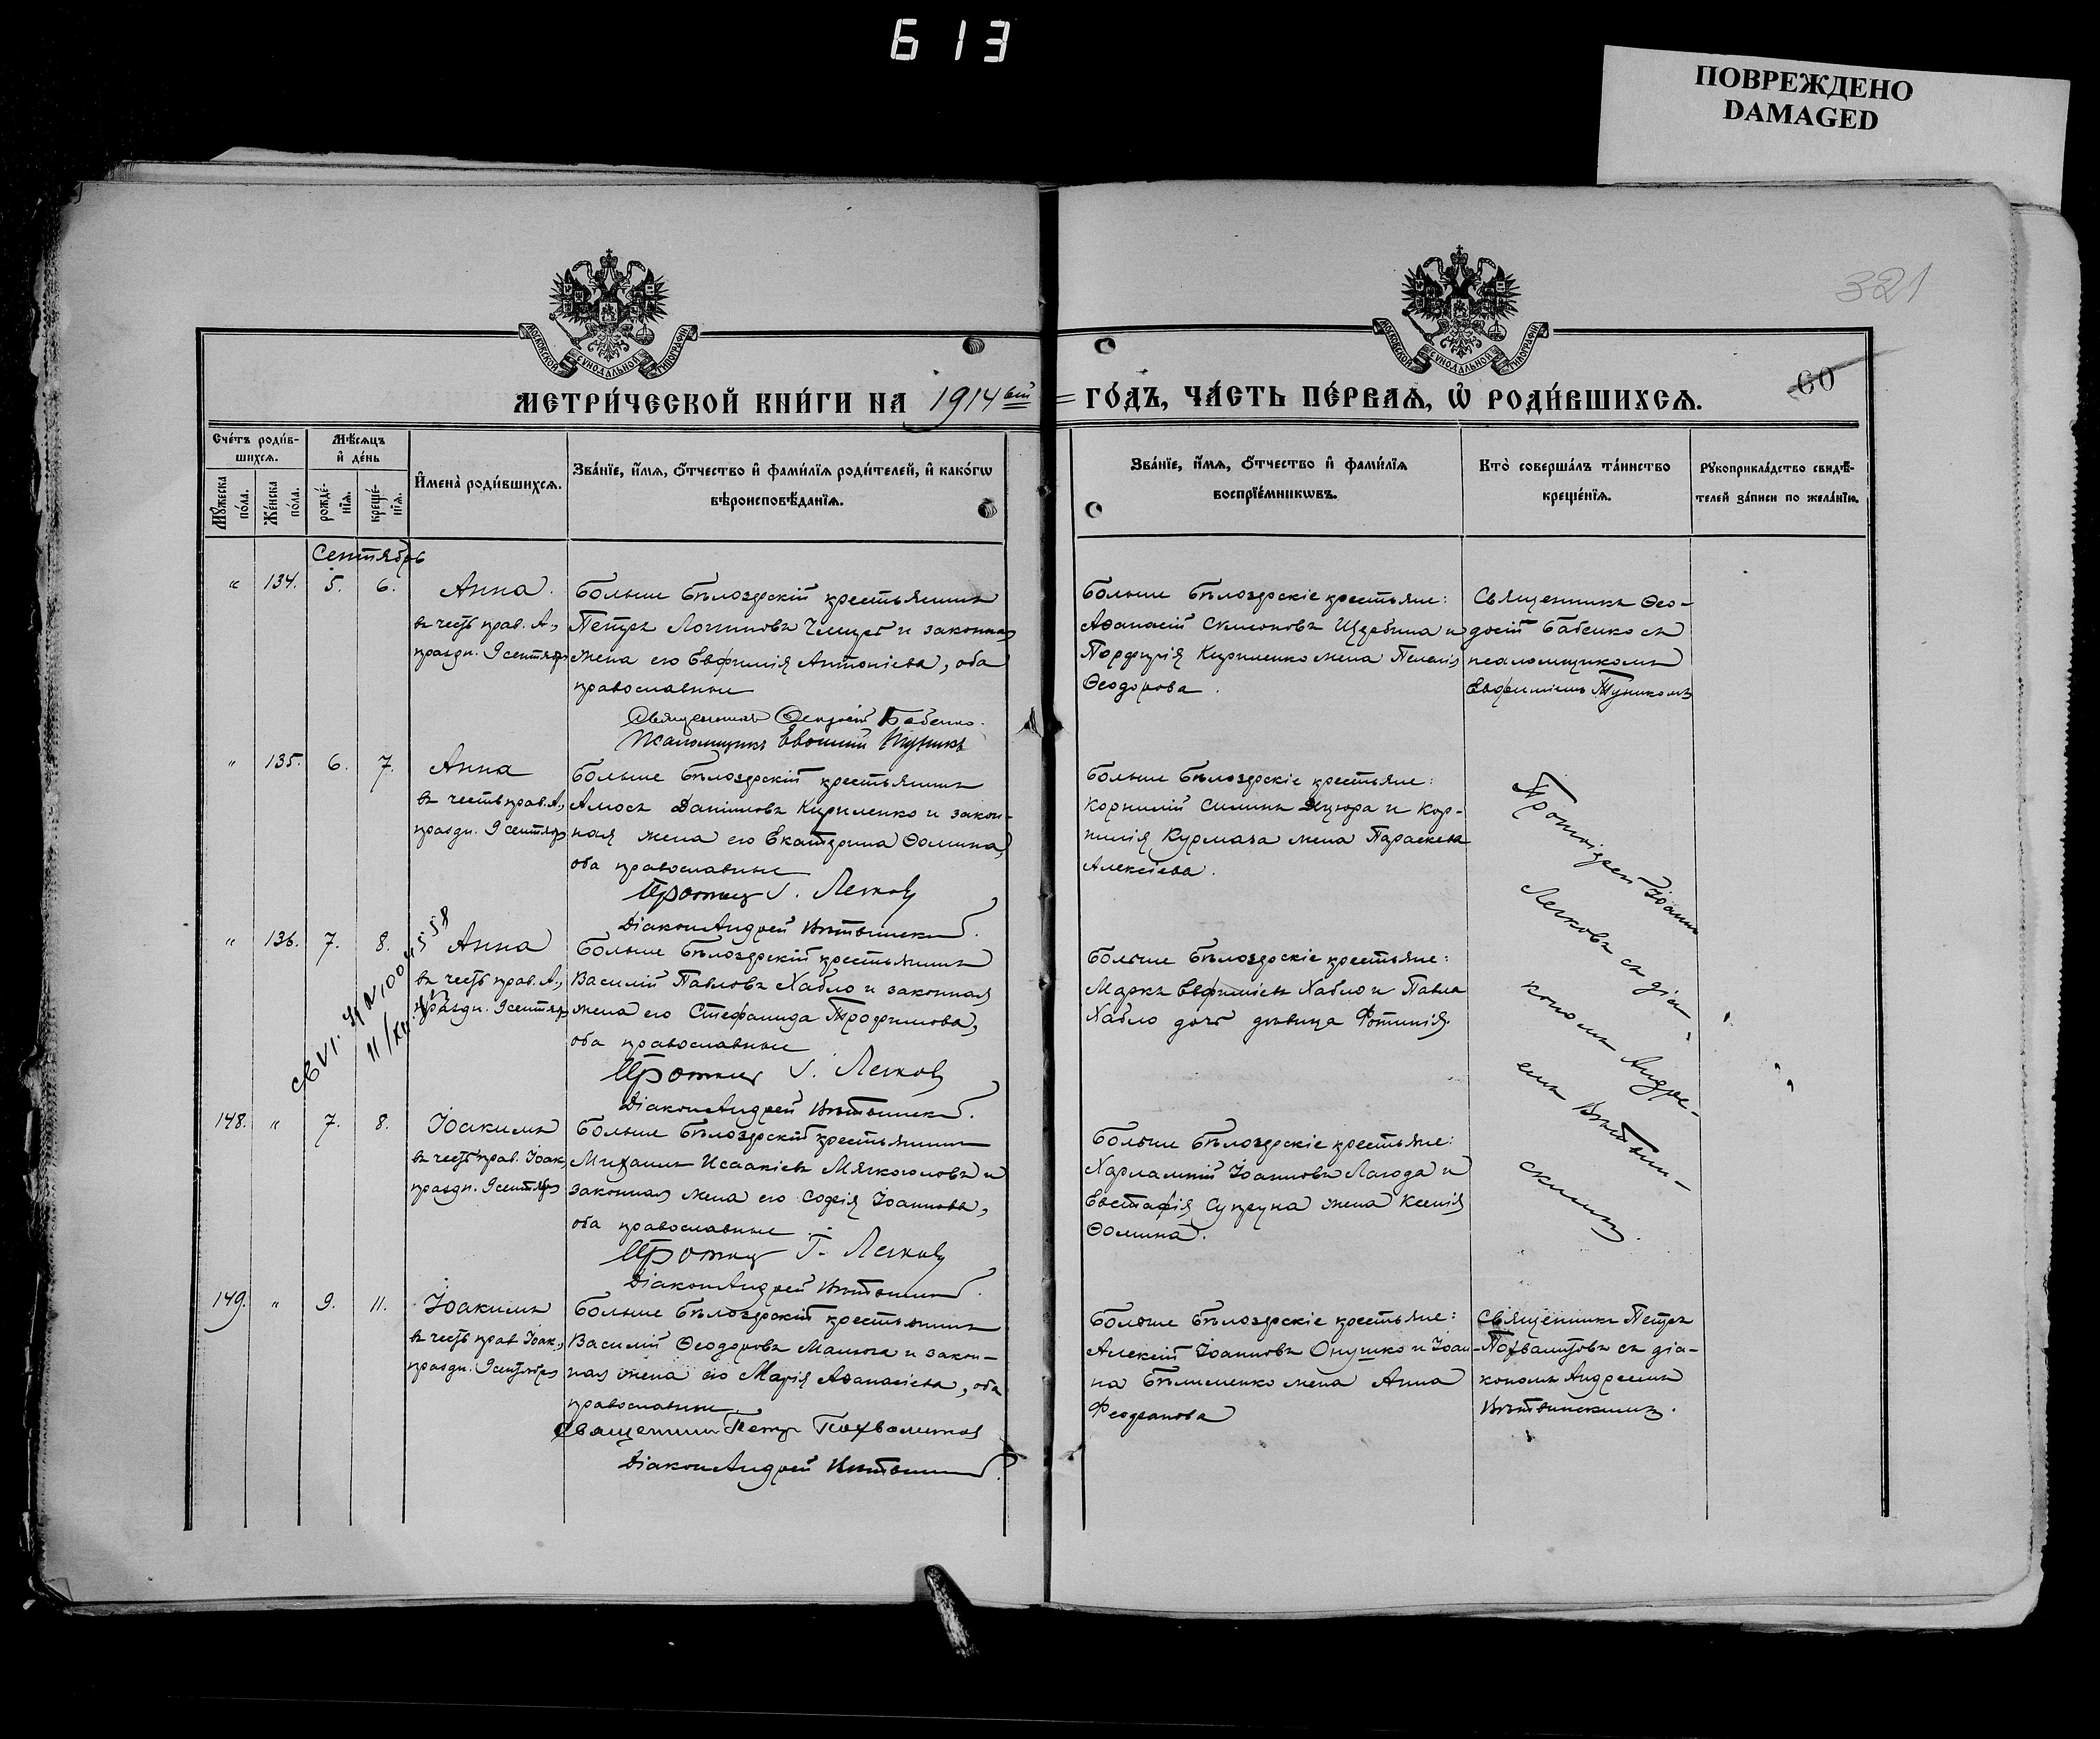 613
ПОВРЕЖДЕНО
DAMAGED
321
60
МОСКОВСКОЙ СѴНОДАЛЬНОЙ ТИПОГРАФІИ
МОСКОВСКОЙ СѴНОДАЛЬНОЙ ТИПОГРАФІИ
МЕТРИ́ЧЕСКОЙ КНИ́ГИ НА 1914 ый
ГО́ДЪ, ЧА́СТЬ ПЕ́РВАѦ, Ѡ҆ РОДИ́ВШИХСѦ.
Сче́тъ роди́в-
шихсѧ.
Мѣ́сѧцъ
и҆ де́нь
И҆мена̀ роди́вшихсѧ.
Зва́нїе, и҆́мѧ, ѻ҆́тчество и҆ фами́лїѧ роди́телей, и҆ како́гѡ
вѣроисповѣ́данїѧ.
Мꙋ́жеска
по́ла.
Же́нска
по́ла.
рожде́-
нїѧ.
креще́-
нїѧ.
Зва́нїе, и҆́мѧ, ѻ҆́тчество и҆ фами́лїѧ
воспрїе́мникѡвъ.
Кто̀ соверша́лъ та́инство
креще́нїѧ.
Рꙋкоприкла́дство свидѣ́-
телей за́писи по жела́нїю.
Сентябрь
" 134. 5. 6.
Анна.
въ честь прав. А.,
праздн. 9 сентяб
Больше Бѣлозерскій крестьянинъ
Петръ Логиновъ и законная
жена его Евфимія Антоніева, оба
православные
Священникъ Ѳеодосій Бабенко.
Псаломщикъ Евфимій Туникъ
Больше Бѣлозерскіе крестьяне:
Аѳанасій Симоновъ Щербина и
Порфирія Кириленко жена Пелагія
Ѳеодорова.
Священникъ Ѳео-
досій Бабенко съ
псаломщикомъ
Евфиміемъ Туникомъ
" 135. 6. 7.
Анна
въ честь прав. А.,
праздн. 9 сентяб
Больше Бѣлозерскій крестьянинъ
Амосъ Даніиловъ Кириленко и закон-
ная жена его Екатерина Ѳомина,
оба православные
Протоіер І. Легковъ
Діаконъ Андрей
Больше Бѣлозерскіе крестьяне:
Корнилій Симинъ и Кор-
нилія Курмаза жена Параскева
Алексіева.
Протоіерей Іоаннъ
Легковъ съ діа-
кономъ Андре-
емъ
скимъ.
" 136. 7. 8.
Анна
въ честь прав. А.,
праздн. 9 сентяб
Больше Бѣлозерскій крестьянинъ
Василій Павловъ Хабло и законная
жена его Стефанида Трофимова,
оба православные
Протоіер І. Легковъ
Діаконъ Андрей
Больше Бѣлозерскіе крестьяне:
Маркъ Евфиміевъ Хабло и Павла
Хабло дочь дѣвица Фотинія.
148. " 7. 8.
Іоакимъ
въ честь прав. Іоак.
праздн. 9 сентяб
Больше Бѣлозерскій крестьянинъ
Михаилъ Исаакіевъ Мягкоголовъ и
законная жена его Софія Іоаннова,
оба православные
Протоіер І. Легковъ
Діаконъ Андрей
Больше Бѣлозерскіе крестьяне:
Харлампій Іоанновъ Лагода и
Евстафія Супруна жена Ксенія
Ѳомина.
149. " 9. 11.
Іоакимъ
въ честь прав. Іоак.,
праздн. 9 сентября
Больше Бѣлозерскій крестьянинъ
Василій Ѳеодоровъ Малюга и закон-
ная жена его Марія Аѳанасіева, оба
православные.
Священникъ Петръ Похвалитовъ
Діаконъ Андрей
Больше Бѣлозерскіе крестьяне:
Алексій Іоанновъ Онушко и Іоан-
на Бѣлименко жена Анна
Священникъ Петръ
Похвалитовъ съ діа-
кономъ Андреемъ